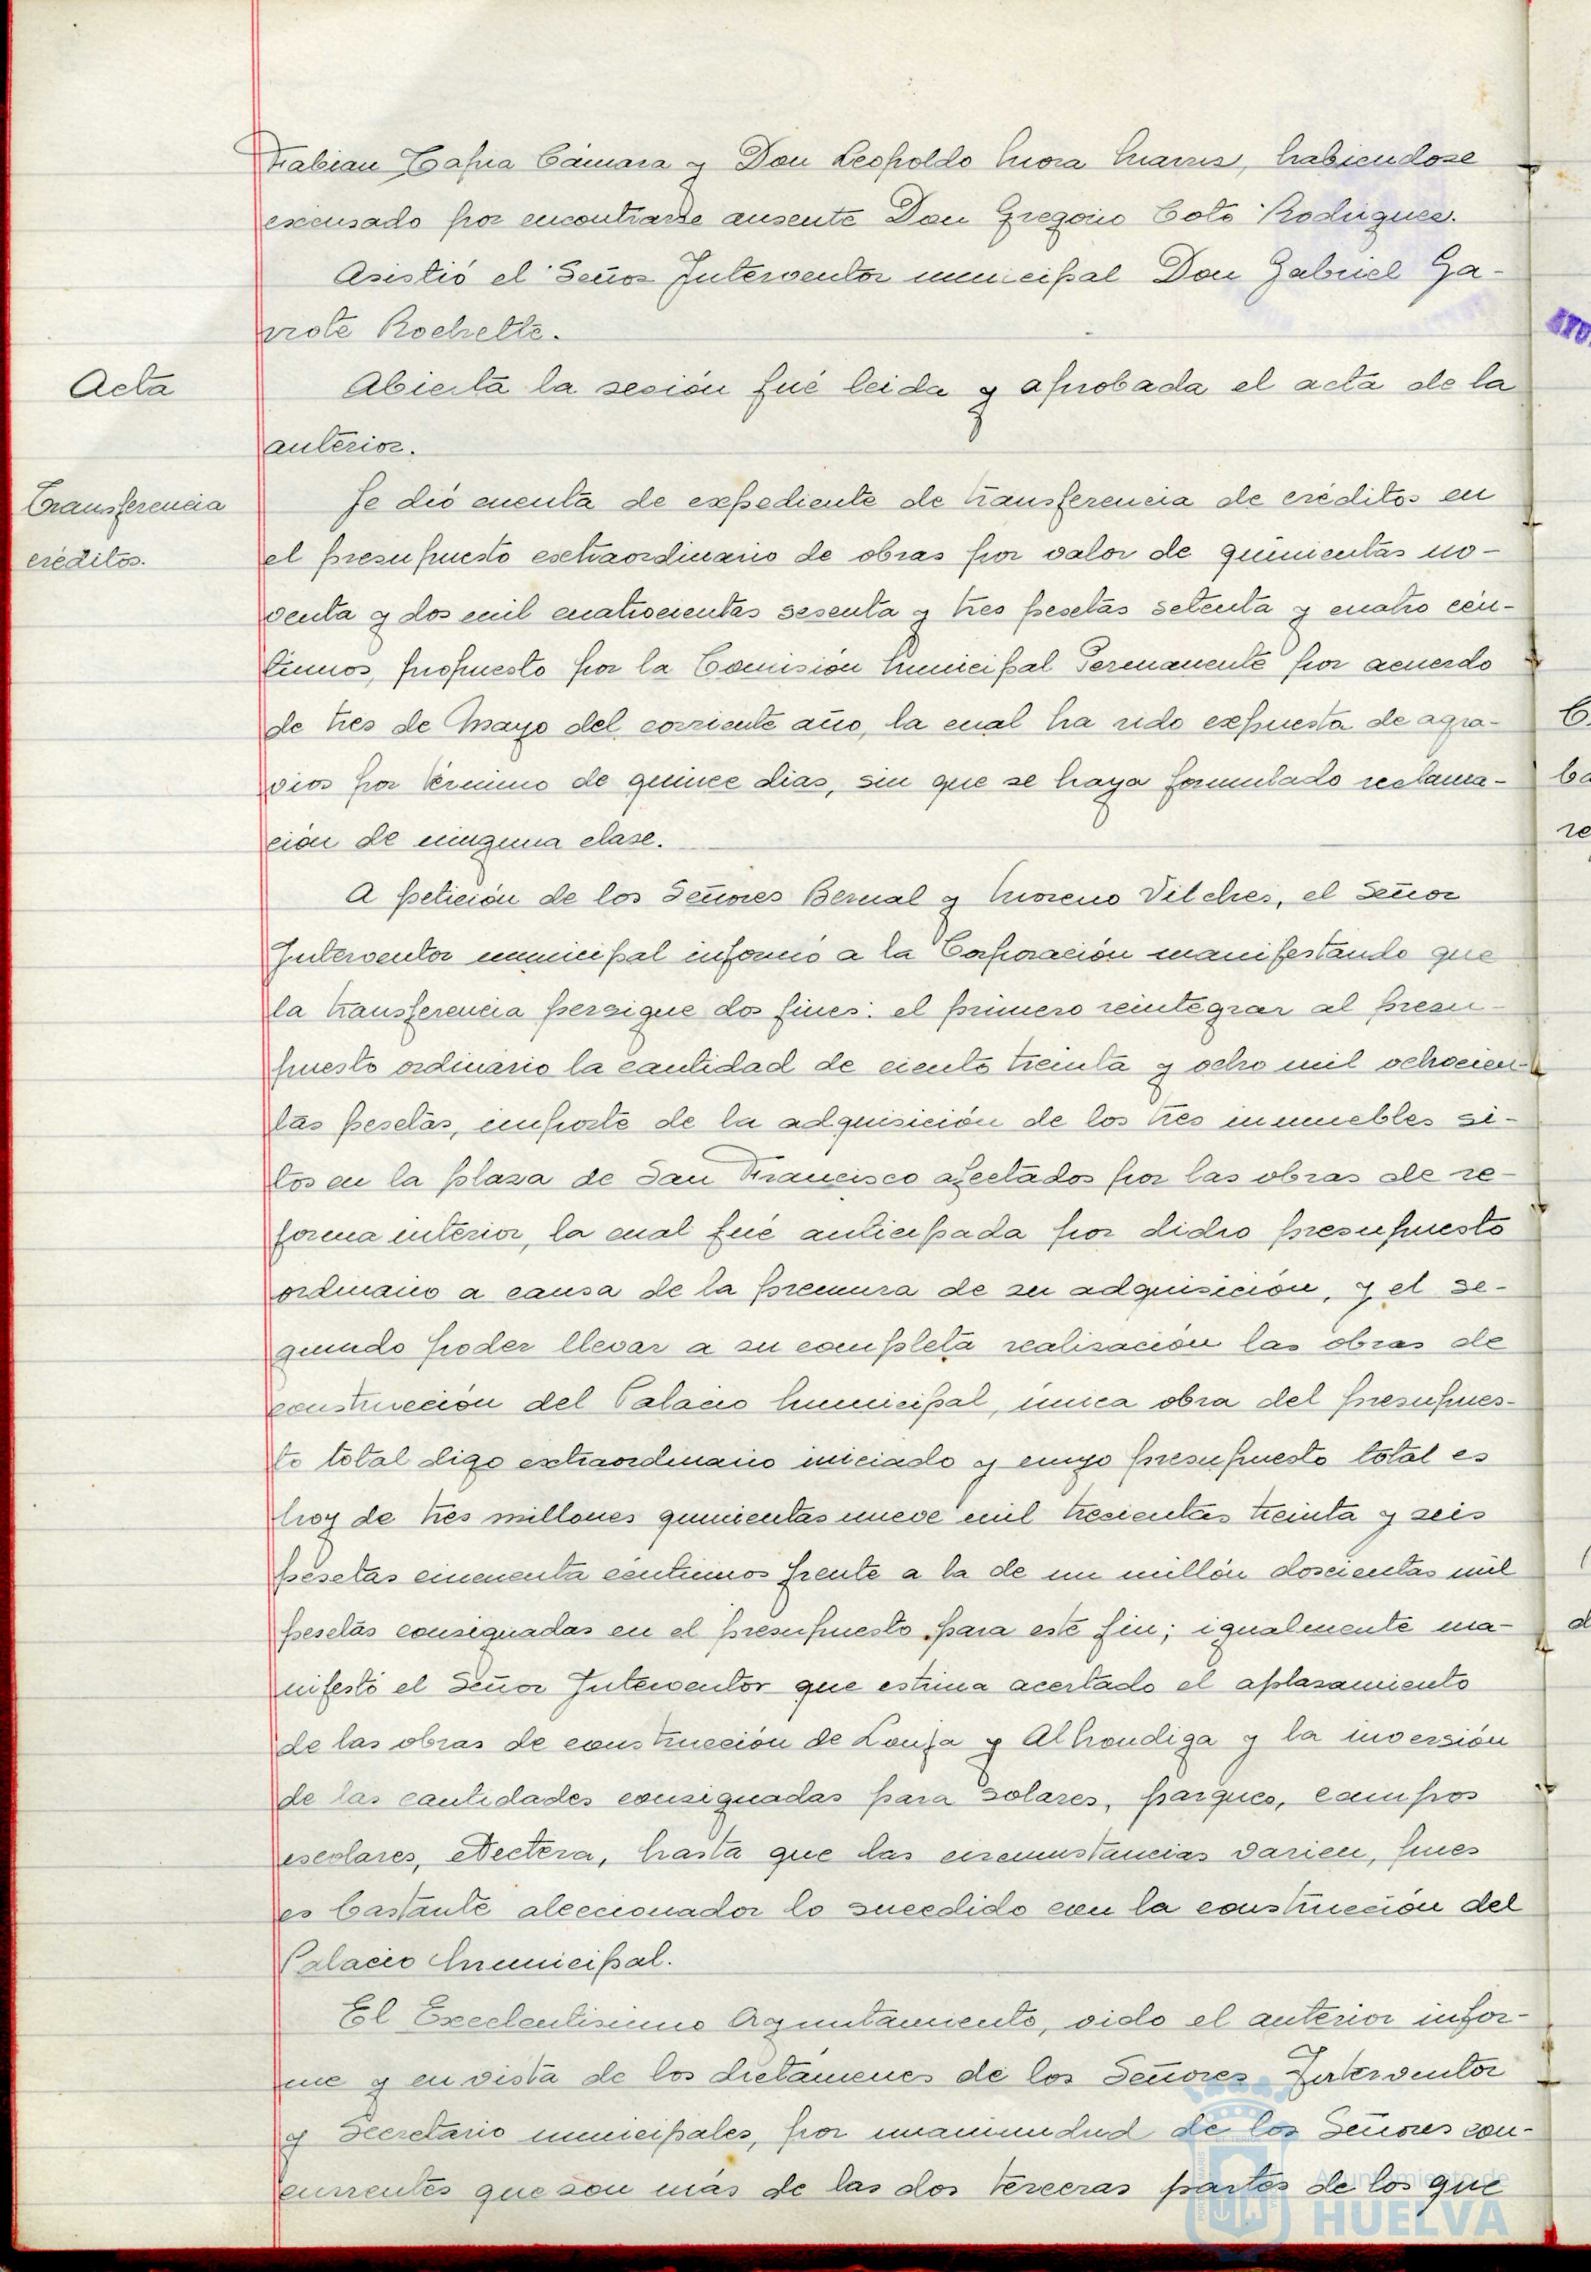 Fabian Tapia Cámara y Don Leopoldo Mora Harris, habiendose
excusado por encontrarse ausente Don Gregorio Coto Rodriguez.
Asistió el Señor Interventor municipal Don Gabriel Ga-
rrote Rochette.
Acta
Abierta la sesión fué leida y aprobada el acta de la
anterior.
Transferencia
créditos.
Se dió cuenta de expediente de transferencia de créditos en
el presupuesto extraordinario de obras por valor de quinientas no-
venta y dos mil cuatrocientas sesenta y tres pesetas setenta y cuatro cén-
timos, propuesto por la Comisión Municipal Permanente por acuerdo
de tres de Mayo del corriente año, la cual ha sido expuesta de agra-
vios por término de quince dias, sin que se haya formulado reclama-
ción de ninguna clase.
A petición de los Señores Bernal y Moreno Vilches, el Señor
Interventor municipal informó a la Corporación manifestando que
la transferencia persigue dos fines: el primero reintegrar al presu-
puesto ordinario la cantidad de ciento treinta y ocho mil ochocien-
tas pesetas, importe de la adquisición de los tres inmuebles si-
tos en la plaza de San Francisco afectados por las obras de re-
forma interior, la cual fué anticipada por dicho presupuesto
ordinario a causa de la premura de su adquisición, y el se-
gundo poder llevar a su completa realización las obras de
construcción del Palacio Municipal, única obra del presupues-
to total digo extraordinario iniciado y cuyo presupuesto total es
hoy de tres millones quinientas nueve mil trescientas treinta y seis
pesetas cincuenta céntimos frente a la de un millón doscientas mil
pesetas consignadas en el presupuesto para este fin; igualmente ma-
nifestó el Señor Interventor que estima acertado el aplazamiento
de las obras de construcción de Lonja y Alhondiga y la inversión
de las cantidades consignadas para solares, parques, campos
escolares, etectera, hasta que las circunstancias varien, pues
es bastante aleccionador lo sucedido con la construcción del
Palacio Municipal.
El Excelentisimo Ayuntamiento, oido el anterior infor-
me y en vista de los dictámenes de los Señores Interventor
y Secretario municipales, por unanimidad de los Señores con-
currentes que son más de las dos terceras partes de los que
Ayuntamiento de
HUELVA